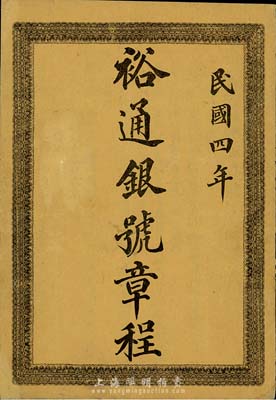 民國四年
裕通銀號章程
上海陽明拍賣
www.yangmingauction.com